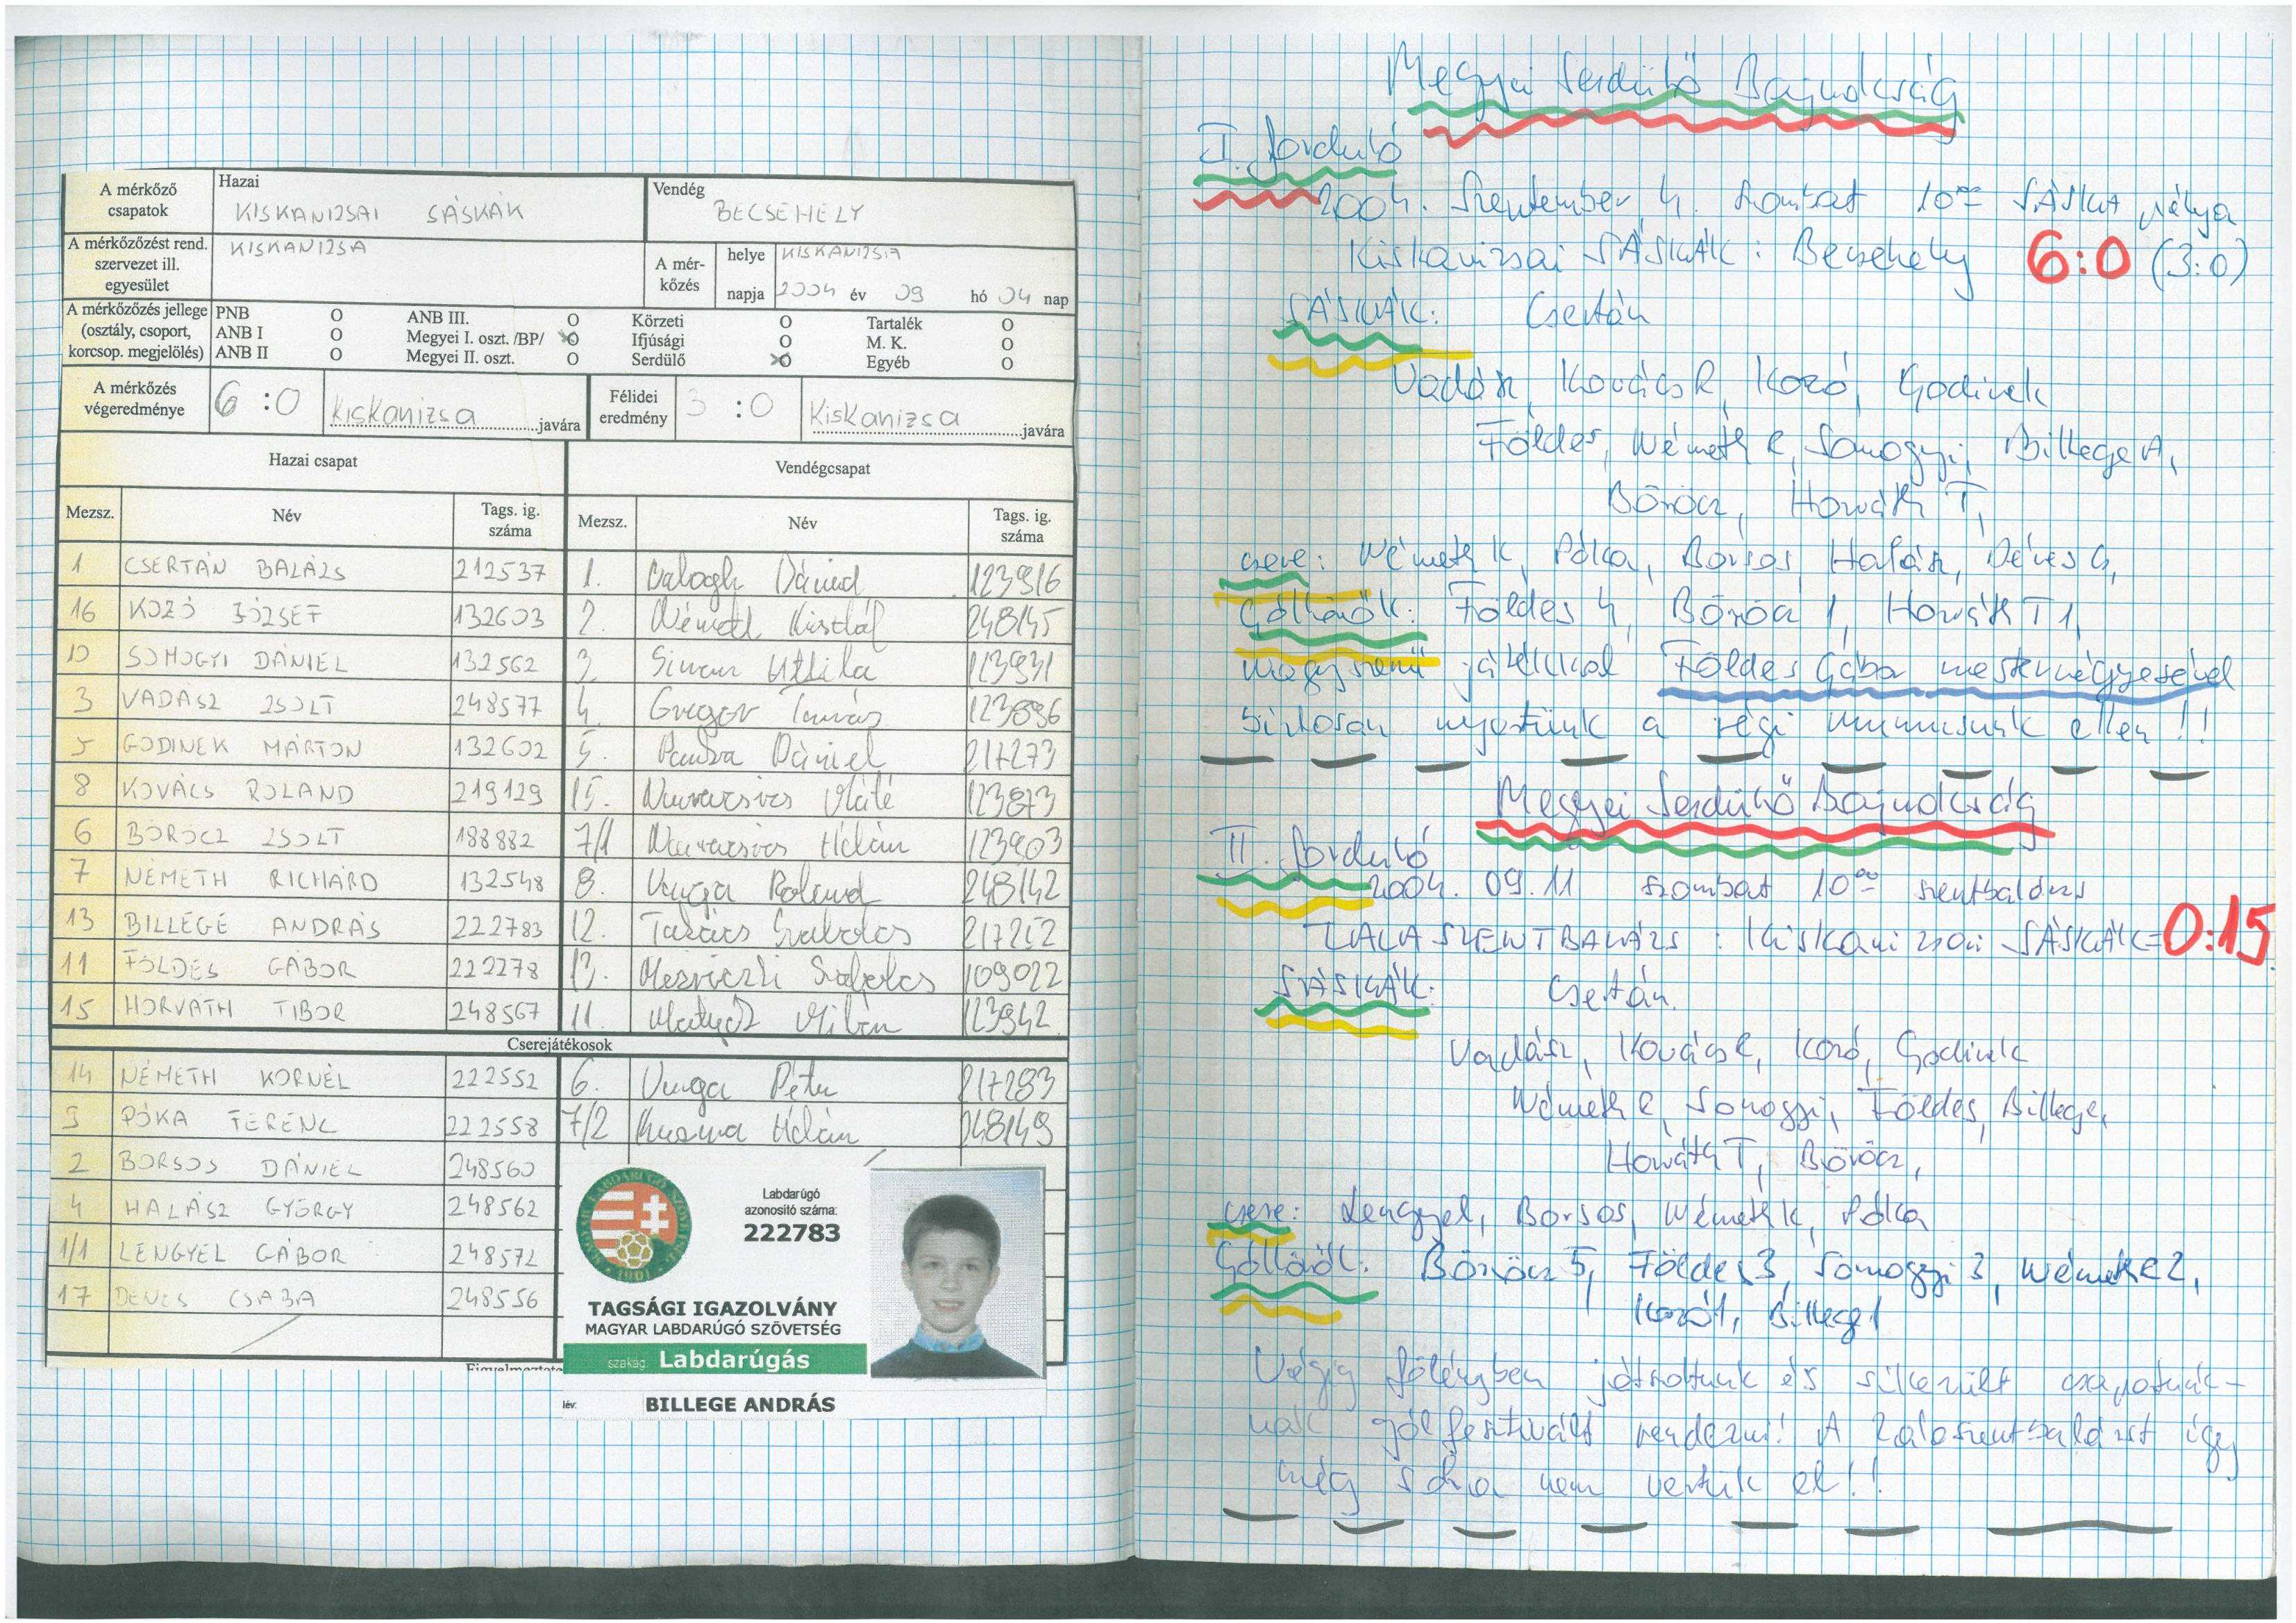 A mérkőző csapatok
Hazai
KISKANIZSAI SÁSKÁK
Vendég
BECSEHELY
A mérkőzőzést rend. szervezet ill. egyesület
KISKANIZSA
A mérkőzés
helye KISKANIZSA
napja 2004 év 09 hó 04 nap
A mérkőzőzés jellege (osztály, csoport, korcsop. megjelölés)
PNB O ANB III. O Körzeti O Tartalék O
ANB I O Megyei I. oszt. /BP/ O Ifjúsági O M. K. O
ANB II O Megyei II. oszt. O Serdülő O Egyéb O
A mérkőzés végeredménye 6 :0 Kiskanizsa javára
Félidei eredmény 3 :0 Kiskanizsa javára
Hazai csapat Vendégcsapat
Mezsz. Név Tags. ig. száma Mezsz. Név Tags. ig. száma
1 CSERTÁN BALÁZS 212537 1. Balogh Dávid 123916
16 KOZÓ JÓZSEF 132603 2. Németh Kristóf 248145
10 SOMOGYI DÁNIEL 132562 3. Simon Attila 123931
3 VADÁSZ ZSOLT 248577 4. Gregor Tamás 123896
5 GODINEK MÁRTON 132602 5. Dániel 217273
8 KOVÁCS ROLAND 219129 15. Máté 123873
6 BÖRÖCZ ZSOLT 188882 7/1 Ádám 123903
7 NÉMETH RICHÁRD 132548 8. Varga Roland 248142
13 BILLEGE ANDRÁS 222783 12. Takács Szabolcs 217252
11 FÖLDES GÁBOR 222278 13. Szabolcs 109022
15 HORVÁTH TIBOR 248567 11. Milán 123942
Cserejátékosok
14 NÉMETH KORNÉL 222552 6. Varga Péter 217293
9 PÓKA FERENC 222558 7/2 Ádám 248149
2 BORSOS DÁNIEL 248560
4 HALÁSZ GYÖRGY 248562
1/1 LENGYEL GÁBOR 248572
17 DENES CSABA 248556
Labdarúgó azonosító száma:
222783
TAGSÁGI IGAZOLVÁNY
MAGYAR LABDARÚGÓ SZÖVETSÉG
szakág: Labdarúgás
név: BILLEGE ANDRÁS
Megyei Serdülő Bajnokság
I. forduló
2004. Szeptember 4. szombat 10⁰⁰ SÁSKA pálya
Kiskanizsai SÁSKÁK : Becsehely 6:0 (3:0)
SÁSKÁK: Csertán
Vadász, Kovács R, Kozó, Godinek
Földes, Németh R, Somogyi, Billege A,
Böröcz, Horváth T,
csere: Németh K, Póka, Borsos, Halász, Dénes Cs,
Góllövők: Földes 4, Böröcz 1, Horváth T 1,
nagyszerű játékkal Földes Gábor mesternégyesével
biztosan nyertünk a régi mumusunk ellen!!
Megyei Serdülő Bajnokság
II. forduló
2004. 09.11 szombat 10⁰⁰ szentbalázs
ZALASZENTBALÁZS : Kiskanizsai SÁSKÁK = 0:15
SÁSKÁK: Csertán.
Vadász, Kovács R, Kozó, Godinek
Németh R, Somogyi, Földes, Billege,
Horváth T, Böröcz,
csere: Lengyel, Borsos, Németh K, Póka
Góllövők: Böröcz 5, Földes 3, Somogyi 3, Németh R 2,
Kozó 1, Billege 1
Végig fölényben játszottunk és sikerült csapatunk-
nak gólfesztivált rendezni! A Zalaszentbalázst így
még soha nem vertük el!!